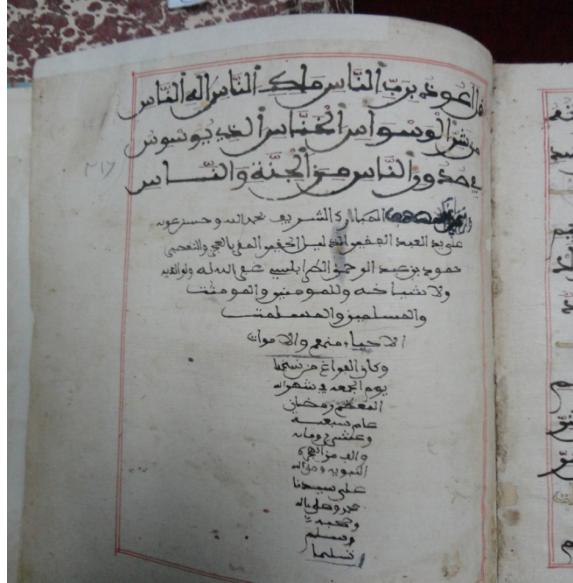 قل اعوذ برب ٱلنَّاس ملك ٱلناس اله ٱلناس
من شر ٱلوسواس ٱلخنَّاس ٱلذي يوسوس
في صدور ٱلناس من ٱلجنَّة والنَّاس
المبارك الشريف بحمد الله وحسن عونه
على يد العبد الفقير الذليل الحقير المقر بالعجز والتقصير
بن عبد الرحمن الله له ولوالديه
ولاشياخه وللمومنين والمومنت
والمسلمين والمسلمت
الاحياء منهم والاموات
وكان الفراغ من نسخه
يوم الجمعه في شهر الله
المعظم رمضان
عام سبعه
وعشرين ومايه
والف من الهجرة
النبويه وصلى الله
على سيدنا
محمد وعلى اله
وصحبه
وسلم
تسليما